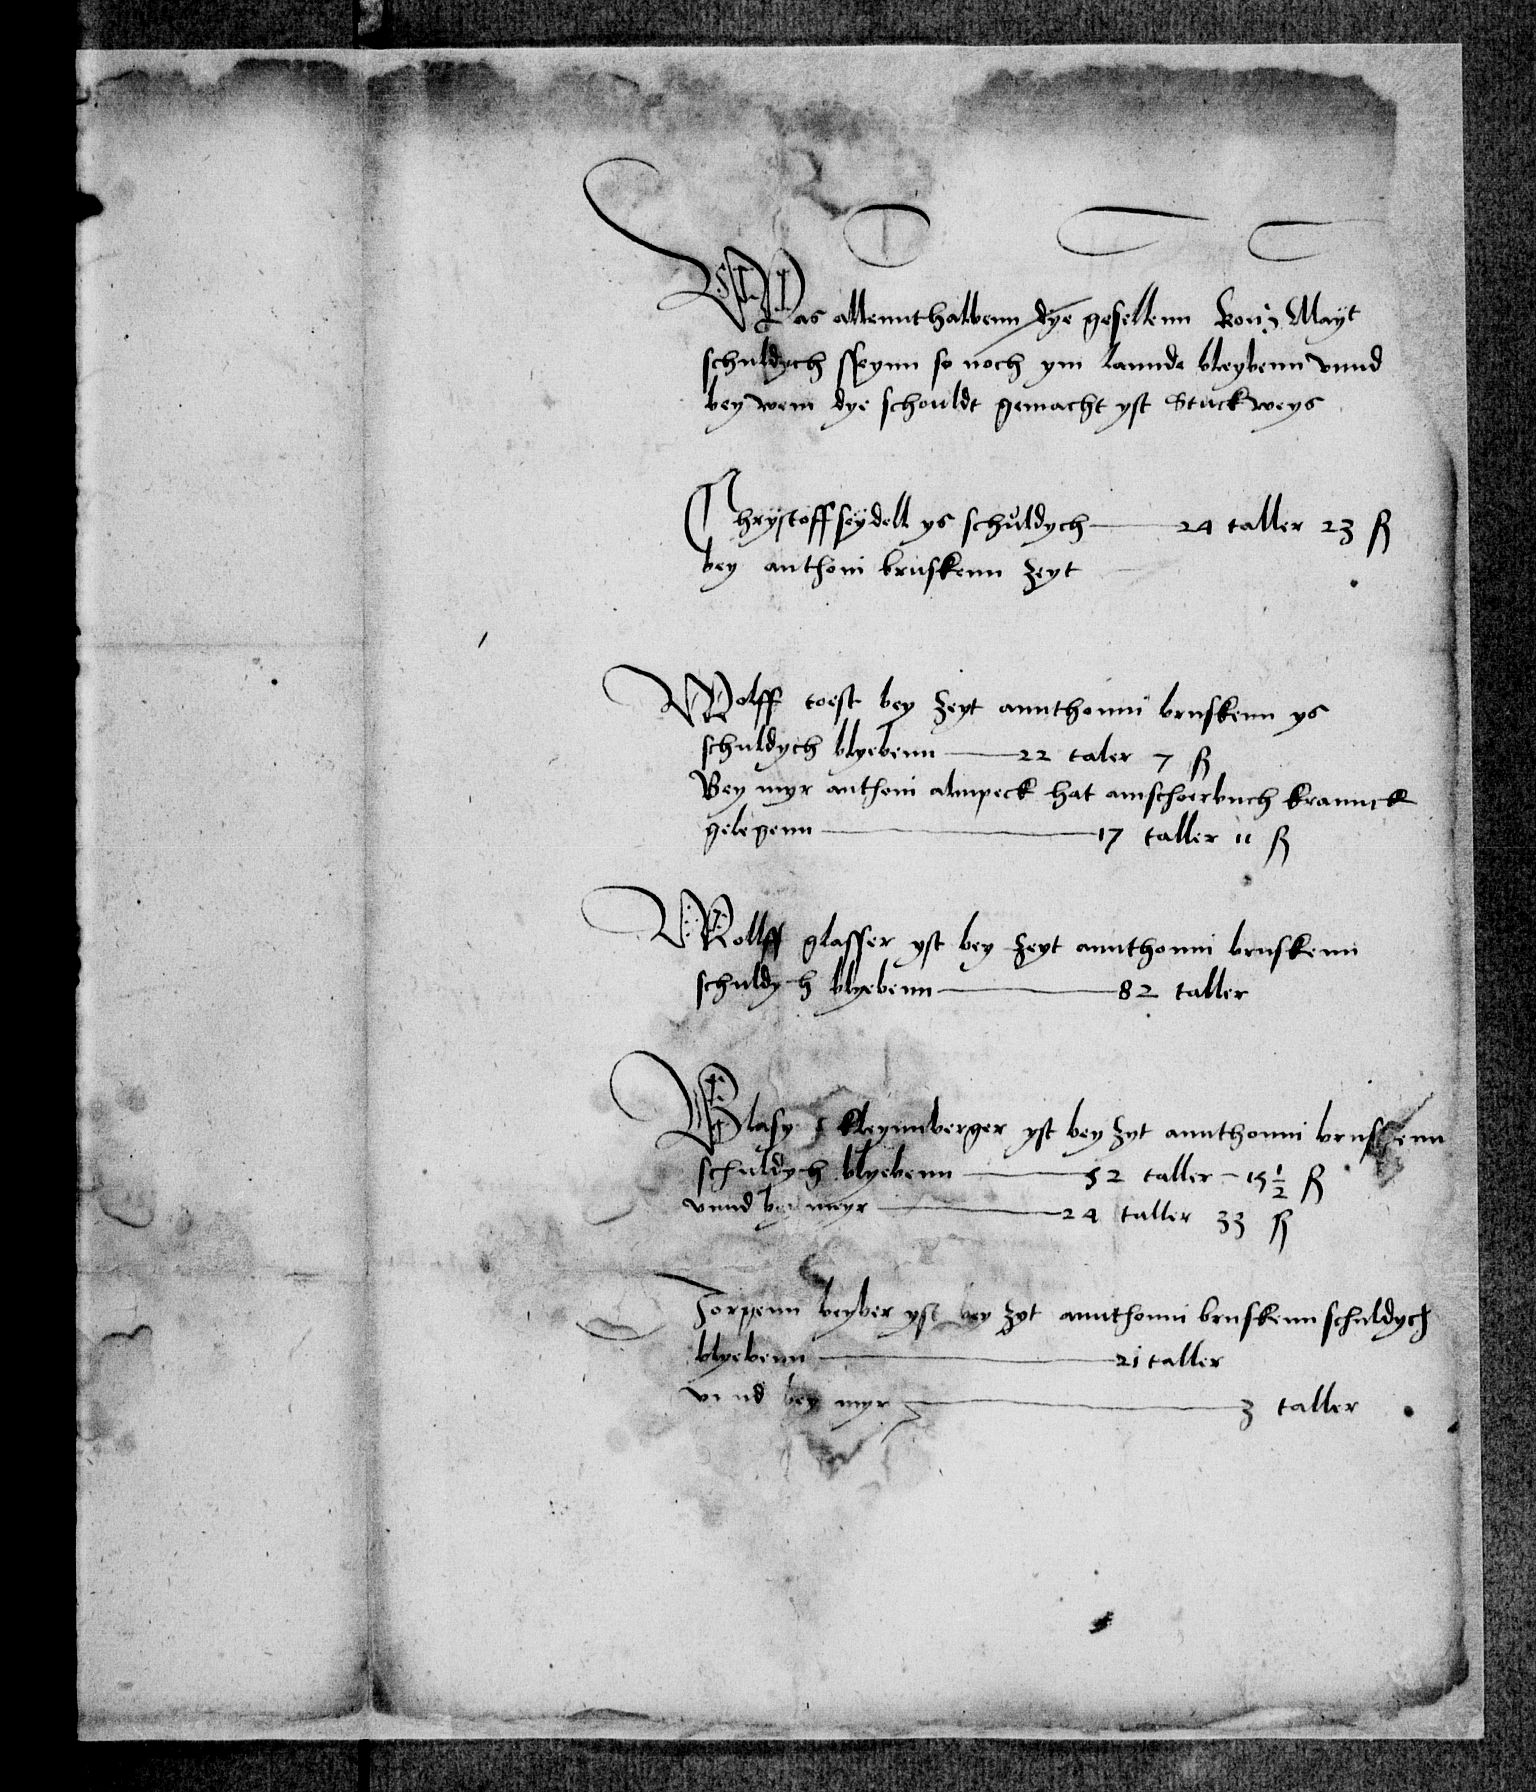 Was allennthalbenn dye gesellenn kon: Mayt
schuldych sseynn so noch ym lannde bleybenn vnnd
bey wem dye schouldt gemacht yst Stuckweys
Chrystoff seydell ys schuldych — 24 taller 23 ß
bey anthoni bruskenn zeyt
Wolff toest bey zeyt annthonni bruskenn ys
schuldych blyebenn — 22 taler 7 ß
Bey myr anthoni almpeck hat am schoerbuch krannck
gelegenn — 17 taller 11 ß
Wollff glasser yst bey zeyt annthonni bruskenn
schuldych blyebenn — 82 taller
Blasy kleynnberger yst bey zyt annthonni bruskenn
schuldych blyebenn — 52 taller – 15 1/2 ß
vnnd bey meyr — 24 taller 33 ß
Jorgenn beyber yst bey zyt annthonni bruskenn schuldych
blyebenn — 21 taller
vnnd bey myr — 3 taller